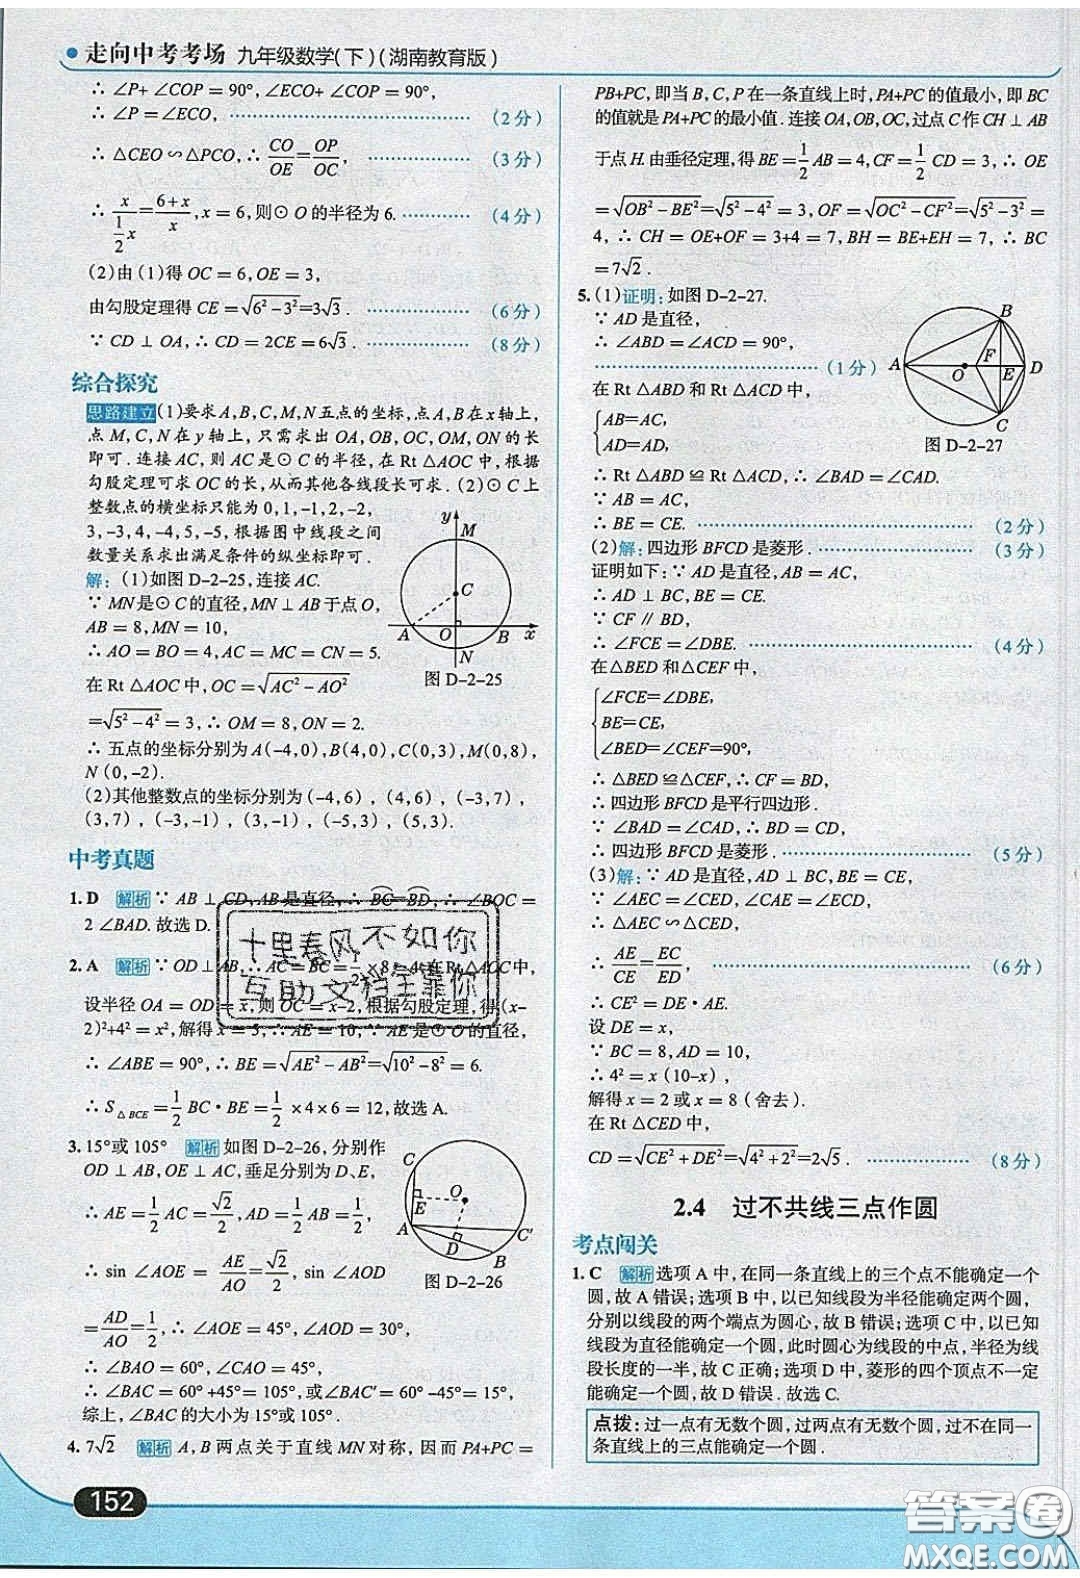 走向中考考场 九年级数学(下)(湖南教育版)
∴ ∠P+ ∠COP = 90°, ∠ECO+ ∠COP = 90°,
∴ ∠P = ∠ECO, (2分)
∴ △CEO ∽ △PCO, ∴ CO/OE = OP/OC, (3分)
∴ x/(1/2 x) = (6+x)/x, x = 6, 则⊙O的半径为6. (4分)
(2)由(1)得 OC = 6, OE = 3,
由勾股定理得 CE = √(6²-3²) = 3√3. (6分)
∵ CD ⊥ OA, ∴ CD = 2CE = 6√3. (8分)
综合探究
思路建立 (1)要求A,B,C,M,N五点的坐标,点A,B在x轴上,
点M,C,N在y轴上,只需求出OA,OB,OC,OM,ON的长
即可.连接AC,则AC是⊙C的半径,在Rt△AOC中,根据
勾股定理可求OC的长,从而其他各线段长可求.(2)⊙C上
整数点的横坐标只能为0,1,-1,2,-2,
3,-3,4,-4,5,-5,根据图中线段之间
数量关系求出满足条件的纵坐标即可.
解:(1)如图D-2-25,连接AC.
∵ MN是⊙C的直径,MN ⊥ AB于点O,
AB = 8, MN = 10,
∴ AO = BO = 4, AC = MC = CN = 5.
在Rt△AOC中, OC = √(AC²-AO²)
= √(5²-4²) = 3, ∴ OM = 8, ON = 2.
y M C A O B x N
图D-2-25
∴ 五点的坐标分别为A(-4,0),B(4,0),C(0,3),M(0,8),
N(0,-2).
(2)其他整数点的坐标分别为(-4,6),(4,6),(-3,7),
(3,7),(-3,-1),(3,-1),(-5,3),(5,3).
中考真题
1. D 解析 ∵ AB ⊥ CD, AB是直径, ∴ BC=BD, ∴ ∠BOC =
2∠BAD.故选D.
2. A 解析 ∵ OD ⊥ AB, ∴ AC = BC = 1/2 × 8 = 4.在Rt△AOC中,
设半径OA = OD = x,则OC = x-2,根据勾股定理,得(x-
2)²+4² = x²,解得x = 5, ∴ AE = 10, ∵ AE是⊙O的直径,
∴ ∠ABE = 90°, ∴ BE = √(AE²-AB²) = √(10²-8²) = 6.
∴ S△BCE = 1/2 BC·BE = 1/2 ×4×6 = 12,故选A.
3. 15°或105° 解析 如图D-2-26,分别作
OD ⊥ AB, OE ⊥ AC,垂足分别为D、E,
∴ AE = 1/2 AC = √2/2, AD = 1/2 AB = 1/2,
∴ sin ∠AOE = AE/AO = √2/2, sin ∠AOD
= AD/AO = 1/2, ∴ ∠AOE = 45°, ∠AOD = 30°,
C E O A D B C′
图D-2-26
∴ ∠BAO = 60°, ∠CAO = 45°,
∴ ∠BAC = 60°+45° = 105°,或∠BAC′ = 60°-45° = 15°,
综上,∠BAC的大小为15°或105°.
4. 7√2 解析 A,B两点关于直线MN对称,因而PA+PC =
PB+PC,即当B,C,P在一条直线上时,PA+PC的值最小,即BC
的值就是PA+PC的最小值.连接OA,OB,OC,过点C作CH ⊥ AB
于点H.由垂径定理,得BE = 1/2 AB = 4, CF = 1/2 CD = 3, ∴ OE
= √(OB²-BE²) = √(5²-4²) = 3, OF = √(OC²-CF²) = √(5²-3²) =
4, ∴ CH = OE+OF = 3+4 = 7, BH = BE+EH = 7, ∴ BC
= 7√2.
5. (1)证明:如图D-2-27.
∵ AD是直径,
∴ ∠ABD = ∠ACD = 90°,
(1分)
在Rt△ABD和Rt△ACD中,
{AB=AC,
AD=AD,
A O F E D B C
图D-2-27
∴ Rt△ABD ≌ Rt△ACD, ∴ ∠BAD = ∠CAD.
∵ AB = AC,
∴ BE = CE. (2分)
(2)解:四边形BFCD是菱形. (3分)
证明如下:∵ AD是直径,AB = AC,
∴ AD ⊥ BC, BE = CE.
∵ CF ∥ BD,
∴ ∠FCE = ∠DBE. (4分)
在△BED和△CEF中,
{∠FCE=∠DBE,
BE=CE,
∠BED=∠CEF=90°,
∴ △BED ≌ △CEF, ∴ CF = BD,
∴ 四边形BFCD是平行四边形.
∵ ∠BAD = ∠CAD, ∴ BD = CD,
∴ 四边形BFCD是菱形. (5分)
(3)解:∵ AD是直径,AD ⊥ BC, BE = CE,
∵ ∠AEC = ∠CED, ∠CAE = ∠ECD,
∴ △AEC ∽ △CED,
∴ AE/CE = EC/ED, (6分)
∴ CE² = DE·AE.
设DE = x,
∵ BC = 8, AD = 10,
∴ 4² = x(10-x),
解得x = 2或x = 8(舍去).
在Rt△CED中,
CD = √(CE²+DE²) = √(4²+2²) = 2√5. (8分)
2.4 过不共线三点作圆
考点闯关
1. C 解析 选项A中,在同一条直线上的三个点不能确定一个
圆,故A错误;选项B中,以已知线段为半径能确定两个圆,
分别以线段的两个端点为圆心,故B错误;选项C中,以已知
线段为直径能确定一个圆,此时圆心为线段的中点,半径为线
段长度的一半,故C正确;选项D中,菱形的四个顶点不一定
能确定一个圆,故D错误.故选C.
点拨:过一点有无数个圆,过两点有无数个圆,过不在同一
条直线上的三点能确定一个圆.
152
十里春风不如你
互助文档全靠你
答案圈
MXQE.COM